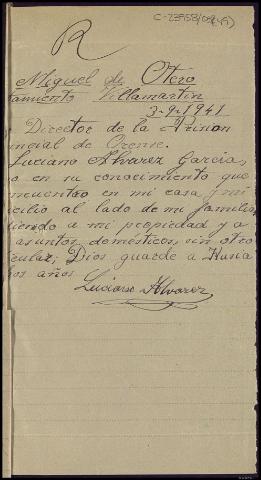 C-23958/09(49)
R
Miguel de Otero
amiento Villamartin
3-9-1941
Director de la Prision
incial de Orense.
Luciano Alvarez Garcia,
o en su conocimiento que
ncuentro en mi casa, (mi
icilio al lado de mi familia,
iendo a mi propiedad y a
asuntos domésticos, sin otro
icular; Dios guarde a
os años
Luciano Alvarez